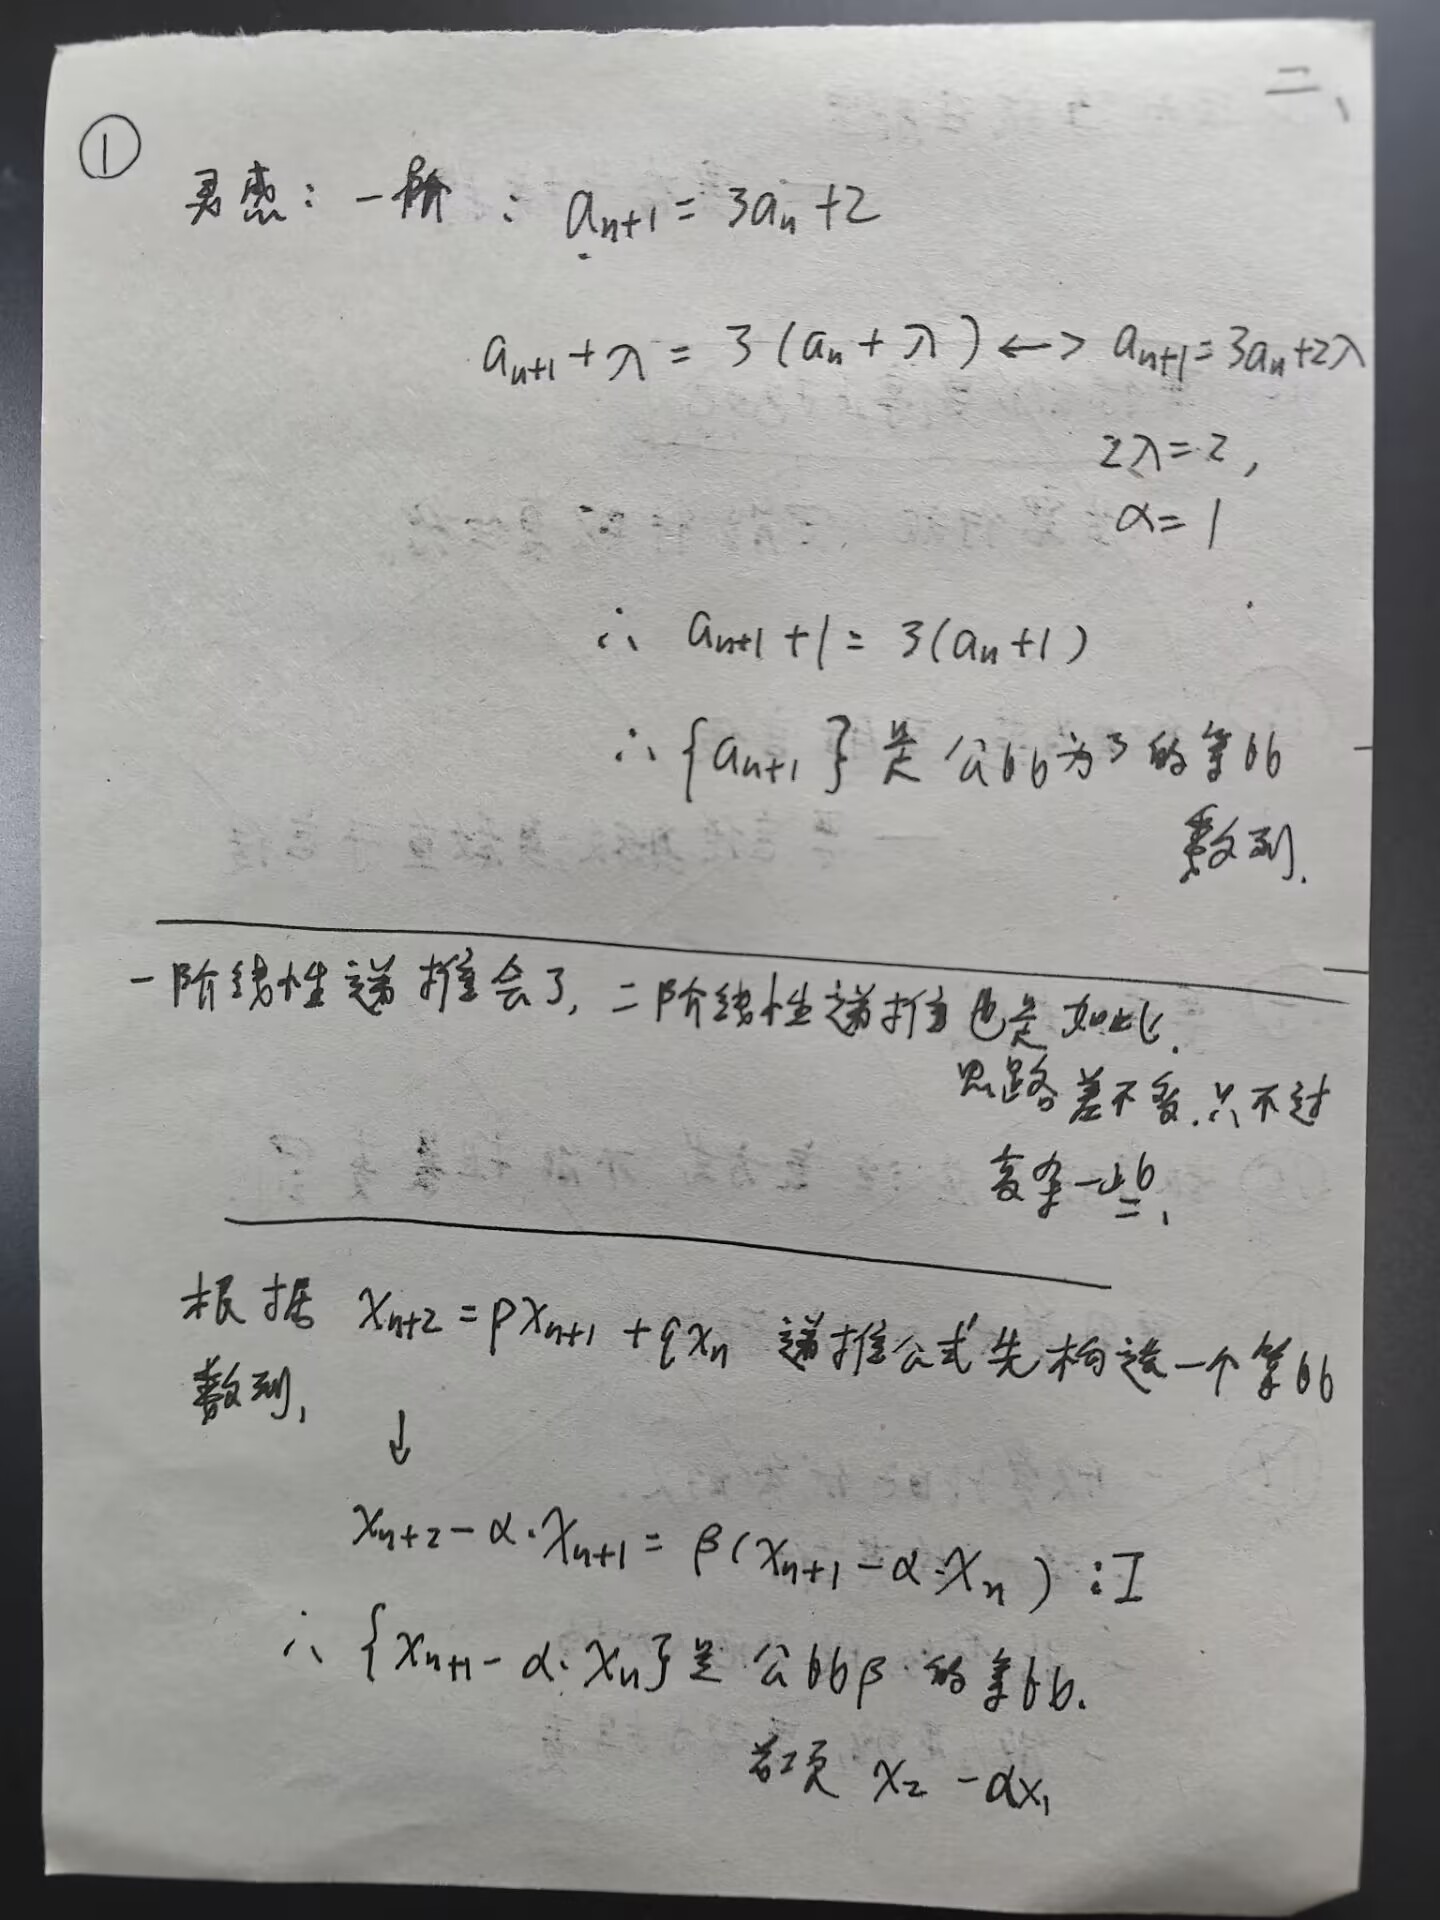 二、
①
灵感：一阶：aₙ₊₁ = 3aₙ + 2
aₙ₊₁ + λ = 3(aₙ + λ) ↔ aₙ₊₁ = 3aₙ + 2λ
2λ = 2，
α = 1
∴ aₙ₊₁ + 1 = 3(aₙ + 1)
∴ {aₙ₊₁} 是公比为3的等比
数列.
一阶线性递推会了，二阶线性递推也是如此.
思路差不多.只不过
复杂一些.
根据 xₙ₊₂ = pxₙ₊₁ + qxₙ 递推公式先构造一个等比
数列，
↓
xₙ₊₂ - α·xₙ₊₁ = β(xₙ₊₁ - α·xₙ)：I
∴ {xₙ₊₁ - α·xₙ}是公比β的等比.
首项 x₂ - αx₁